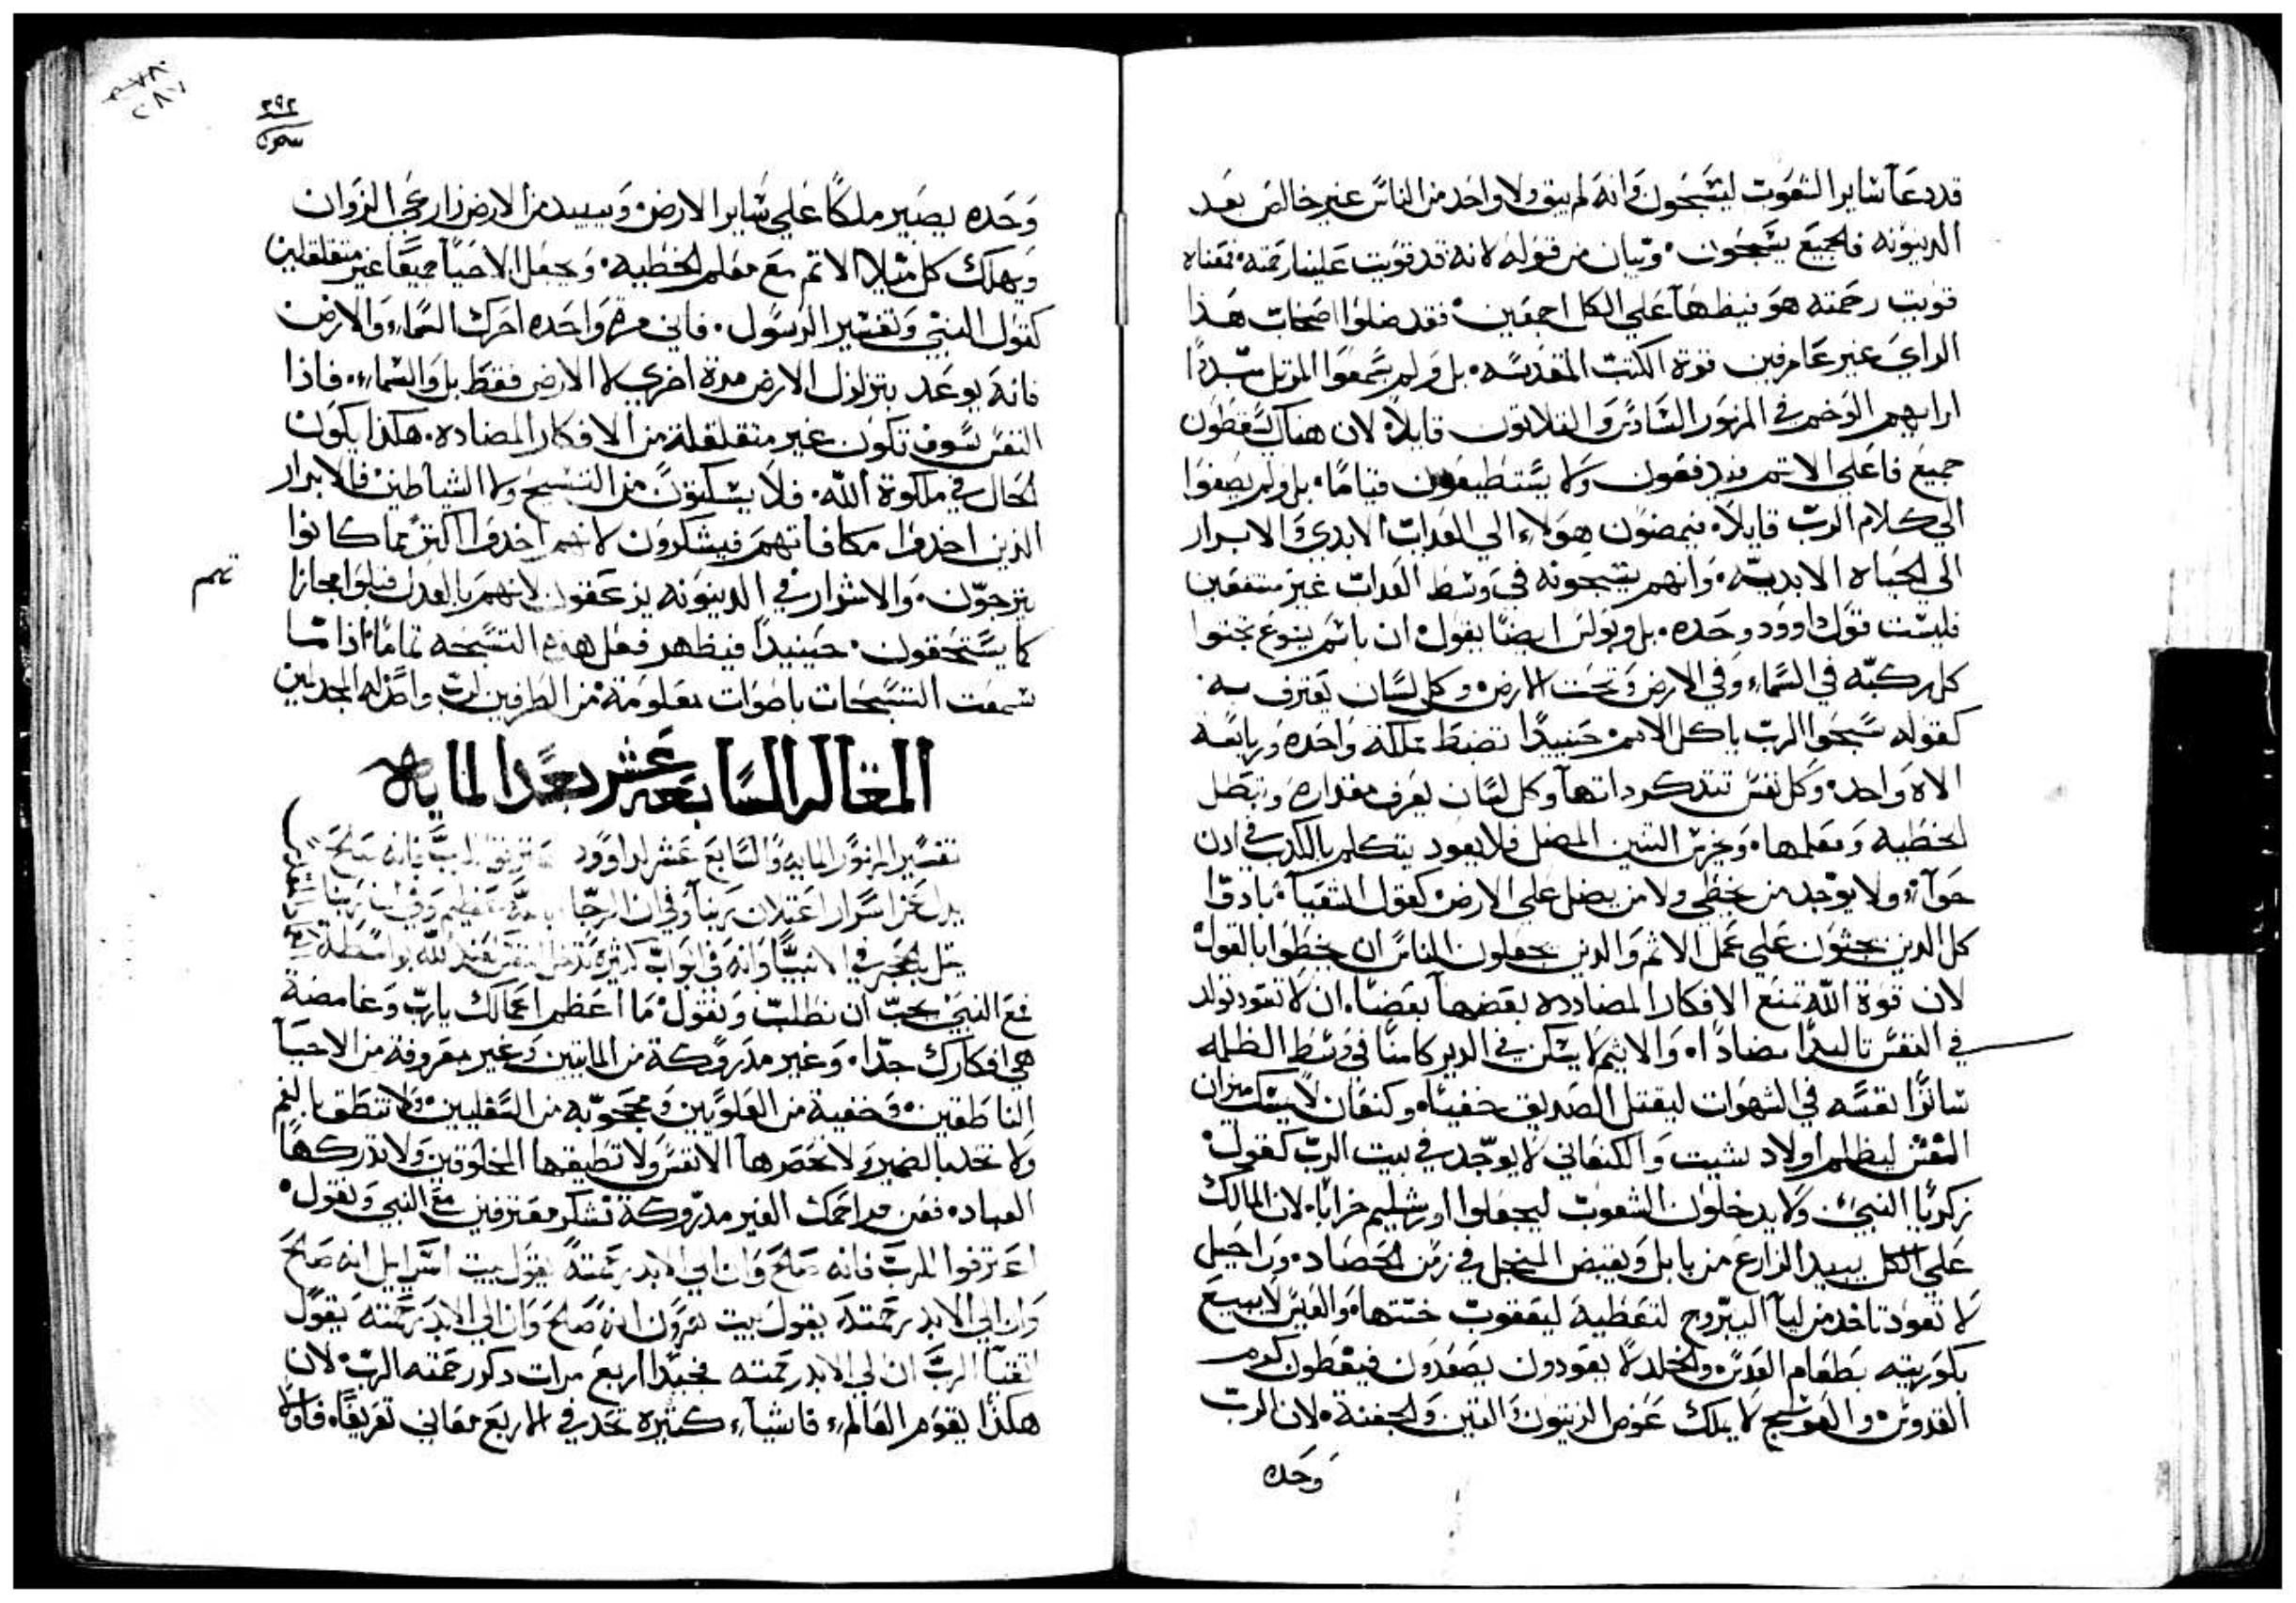 قد دعا ساير الشعوب ليسبحون وانه لم يبق ولا واحد من الناس غير خالص بعد
الدينونه فالجميع يسبحون وبيان من قوله لانه قد قويت علينا رحمته فمعناه
قويت رحمته هو فيظها علي الكل اجمعين فقد ضلوا اصحاب هذا
الراي غير عارفين قوة الكتب المقدسه بل ولم يسمعوا المرتل
رايهم الوخم في المزمور السادس والثلاثون قايلا لان هناك يسقطون
جميع فاعلي الاثم يندفعون ولا يستطيعون قياما بل ولم يصغوا
الي كلام الرب قايلا فيمضون هولاء الي العداب الابدي والابرار
الي الحياه الابديه وانهم يسبحونه في وسط العداب غير منتفعين
فليست قول داوود وحده بل وبولس ايضا يقول ان باسم يسوع تجتوا
كل ركبه في السماء وفي الارض وتحت الارض وكل لسان يعترف به
كقوله سبحوا الرب يا كل الامم حينيدا تضبط مملكة واحده ورياسه
الاه واحد وكل نفس تتدكر داتها وكل لسان يعرف مقداره وتبطل
الخطية ومعلمها ويخرس التنين المضل فلا يعود يتكلم بالكدب في ادن
حوآء ولا يوجد من يخطي ولا من يضل علي الارض كقول اشعيآ بادوا
كل الدين يحثون علي عمل الاثم والدين يجعلون الناس ان يخطوا بالقول
لان قوة الله تمنع الافكار المضادده بعضها بعضا ان لا تعود تولد
في النفس تاليدا مضادا والاثيم لا يسكن في الدير كامنا في وسط الظلمه
ساترا نفسه في الشهوات ليقتل الصديق خفيا وكنعان لا يمسك ميزان
الغش ليظلم اولاد شيت والكنعاني لا يوجد في بيت الرب كقول
زكريا النبي ولا يدخلون الشعوب ليجعلوا اورشليم خرابا لان المالك
علي الكل يبيد الزارع من بابل ويقبض المنجل في زمن الحصاد وراحيل
لا تعود تاخد من ليا اليبروح لتعطيه ليعقوب ختنها والعيس لا يبيع
بكوريته بطعام العدس والخلد لا يعودون يصعدون فيقطون كرم
القدوس والعوسج لا يملك عوض الزيتون التين والجفنة لان الرب
وحده
٢٩٢
وحده يصير ملكا علي ساير الارض ويبيد من الارض زارعي الزوان
ويهلك كل ميلاد الاثم مع معلم الخطيه ويجعل الاحيا جميعا غير متقلقلين
كقول النبي وتفسير الرسول فاني مرة واحده احرك السماء والارض
فانه يوعد بتزلزل الارض مرة اخري لا الارض فقط بل والسماء فاذا
النفس سوف تكون غير متقلقلة من الافكار المضاده هكذا يكون
الحال في ملكوة الله فلا يسكتون من التسبيح ولا الشياطين فالابرار
الدين اخدوا مكافاتهم فيشكرون لانهم اخدوا اكتر مما كانوا
يترجون والاشرار في الدينونه يزعقون لانهم بالعدل قبلوا مجازا
كما يستحقون حينيدا فيظهر فعل هده التسبحه تماما ادا ما
سمعت التسبحات باصوات معلومة من الطرفين لرب واحد له المجد امين
المقاله السابعه عشر بعد المايه
تفسير المزمور المايه والسابع عشر لداوود
مع النبي يجب ان نطلب ونقول ما اعظم اعمالك يارب وغامضة
هي افكارك جدا وغير مدروكة من المايتين وغير معروفة من الاحيا
الناطقين وخفية من العلويين ومحجوبه من السفليين ولا تنطق بالفم
ولا تحد بالضمير ولا تحصرها الانفس ولا تطيقها المخلوقين ولا تدركها
العباده فمن مراحمك الغير مدروكة نشكر معترفين مع النبي ونقول
اعترفوا للرب فانه صالح وان الي الابد رحمته يقول بيت اسرايل انه صالح
وان الي الابد رحمته يقول بيت هرون انه صالح وان الي الابد رحمته يقول
اتقيا الرب ان الي الابد رحمته فحينيدا اربع مرات دكور رحمته الرب لان
هكذا يقوم العالم فاشيآء كثيره تحد في الاربع معاني تعريفا فاولا